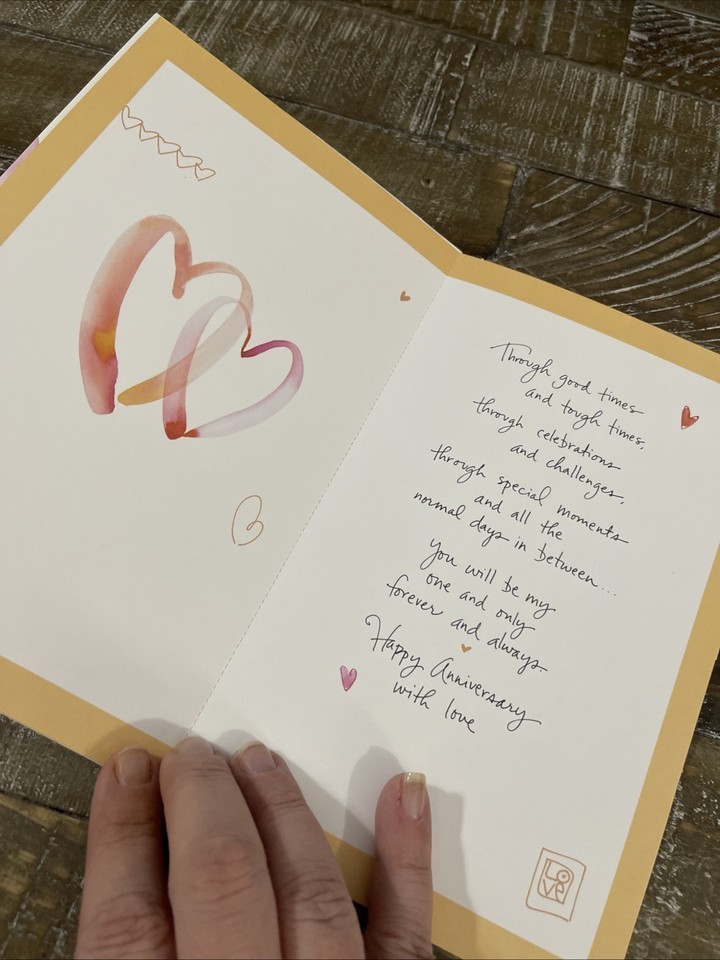 Through good times
and tough times,
through celebrations
and challenges,
through special moments
and all the
normal days in between...
you will be my
one and only
forever and always.
Happy Anniversary
with love
LO
VE